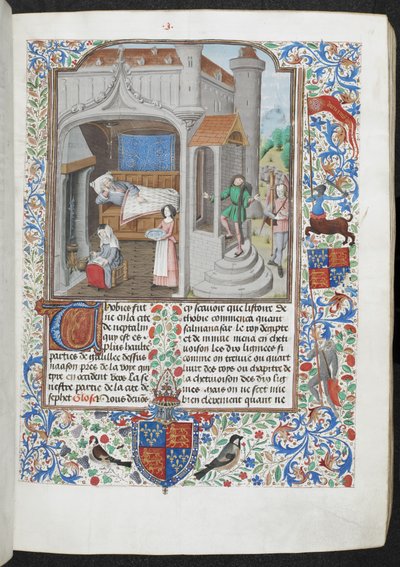 ·3·
Thobies fut
ne en la cite
de neptalim
qui est es
plus haultes
parties de galilee dessus
naason pres de la voye qui
tyre en occident vers la se
nestre partie de la cite de
sephet Glose Vous deues
cy scauoir que listoire de
thobie commenca quant
salmanasar le roy degypte
et de ninue mena en chet
uoison les dix lignees si
comme on treuue ou quart
liure des roys ou chapitre de
la chetiuoison des dix lig
nees mais on ne scet mie
bien clerement quant ne